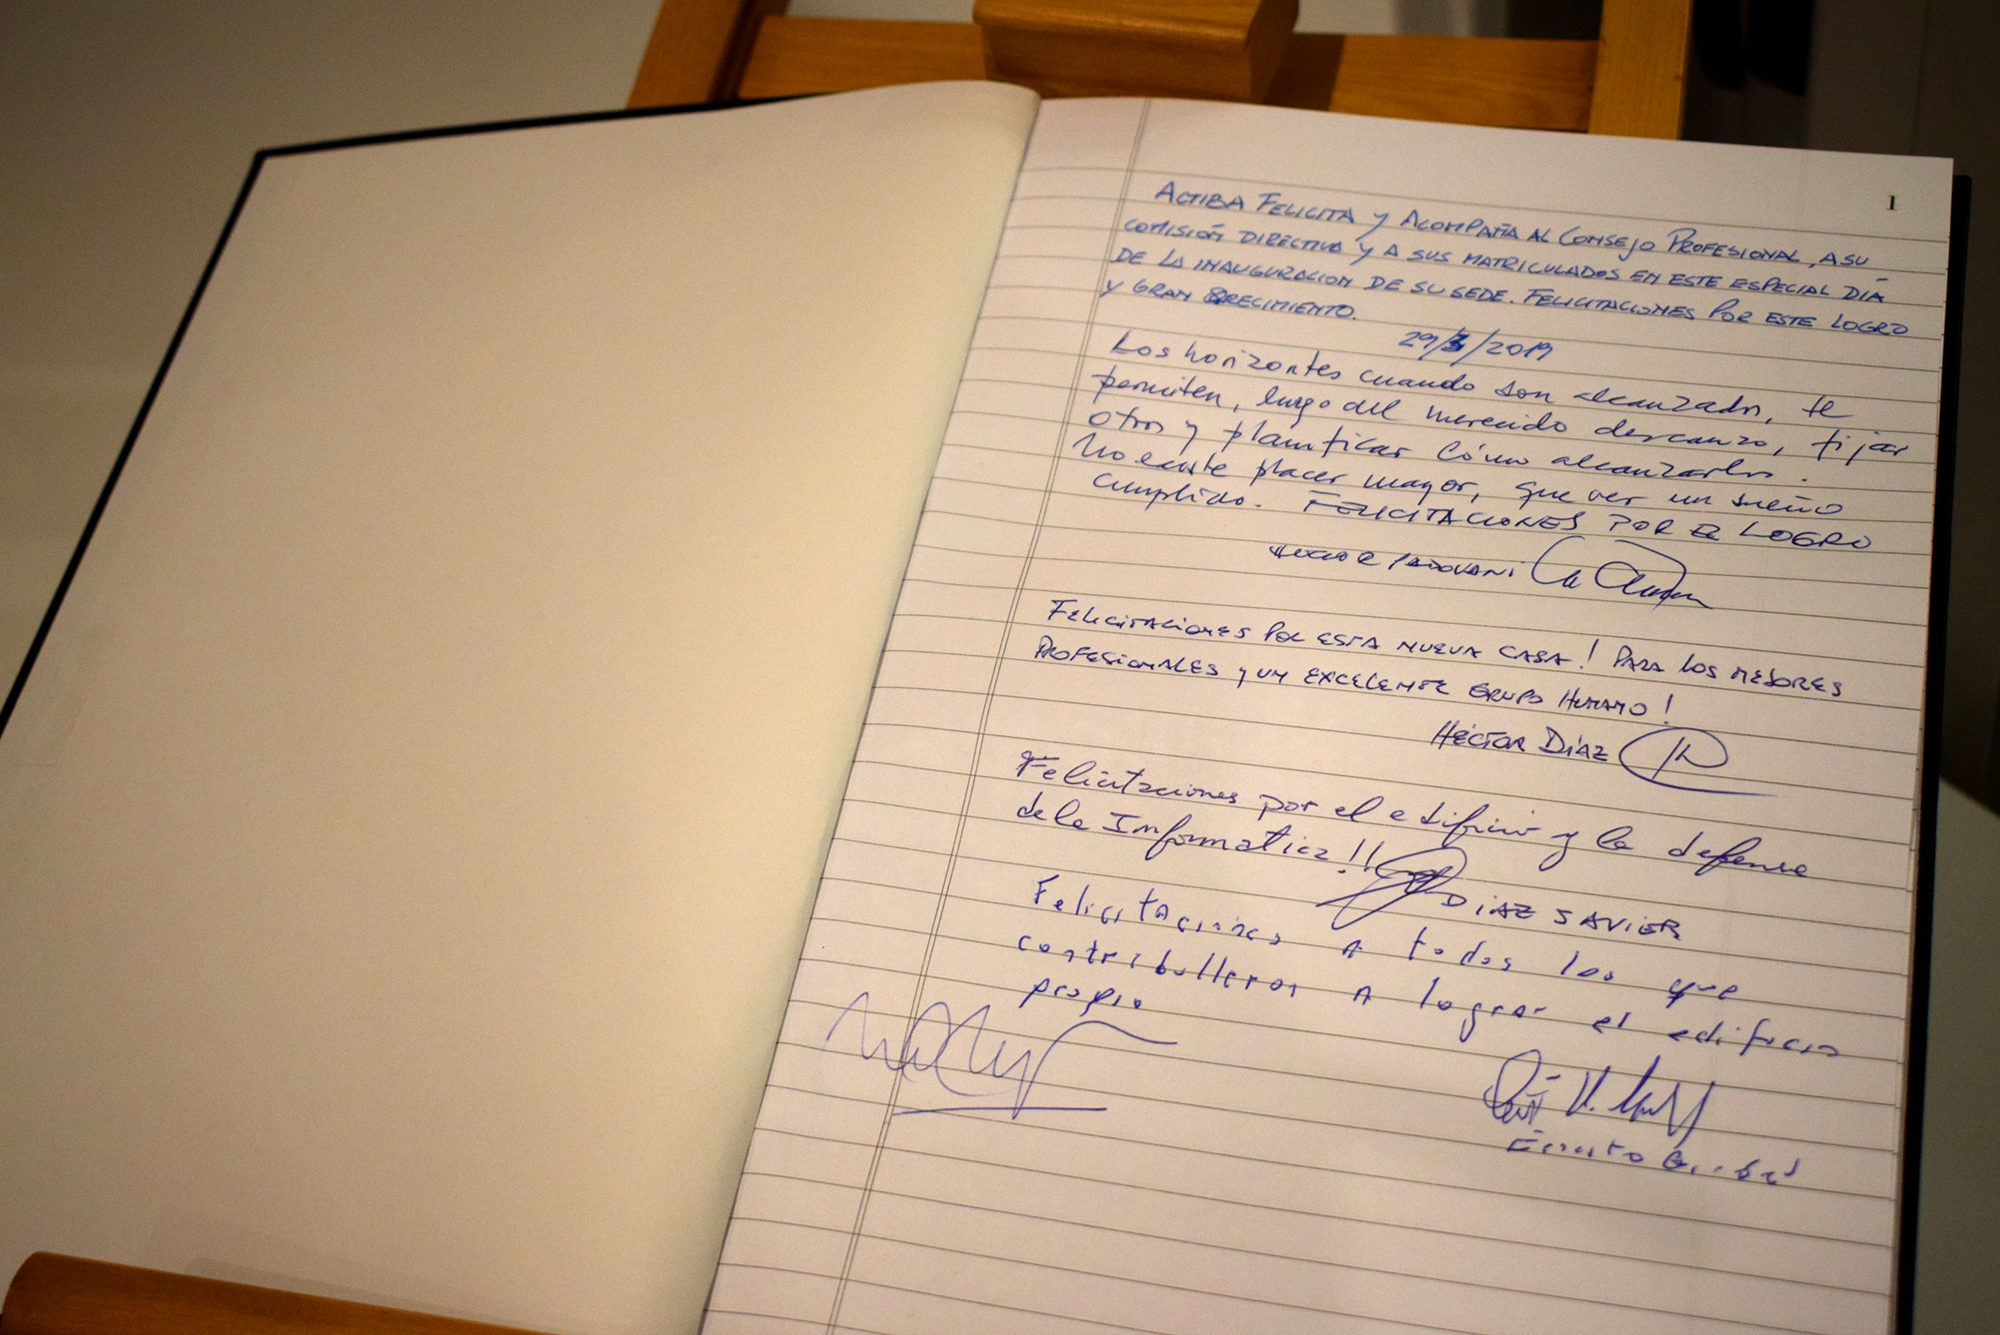 1
ACTIBA FELICITA Y ACOMPAÑA AL CONSEJO PROFESIONAL, A SU
COMISIÓN DIRECTIVA Y A SUS MATRICULADOS EN ESTE ESPECIAL DÍA
DE LA INAUGURACION DE SU SEDE. FELICITACIONES POR ESTE LOGRO
Y GRAN CRECIMIENTO.
29/3/2019
Los horizontes cuando son alcanzados, te
permiten, luego del merecido descanzo, fijar
otros y planificar cómo alcanzarlos.
No existe placer mayor, que ver un sueño
cumplido. FELICITACIONES POR EL LOGRO
HECTOR PADOVANI
FELICITACIONES POR ESTA NUEVA CASA! PARA LOS MEJORES
PROFESIONALES Y UN EXCELENTE GRUPO HUMANO!
HÉCTOR DIAZ
Felicitaciones por el edificio y la defensa
de la Informatica!!
DIAZ JAVIER
Felicitaciones A todos los que
contribulleron A lograr el edificio
propio
Ernesto